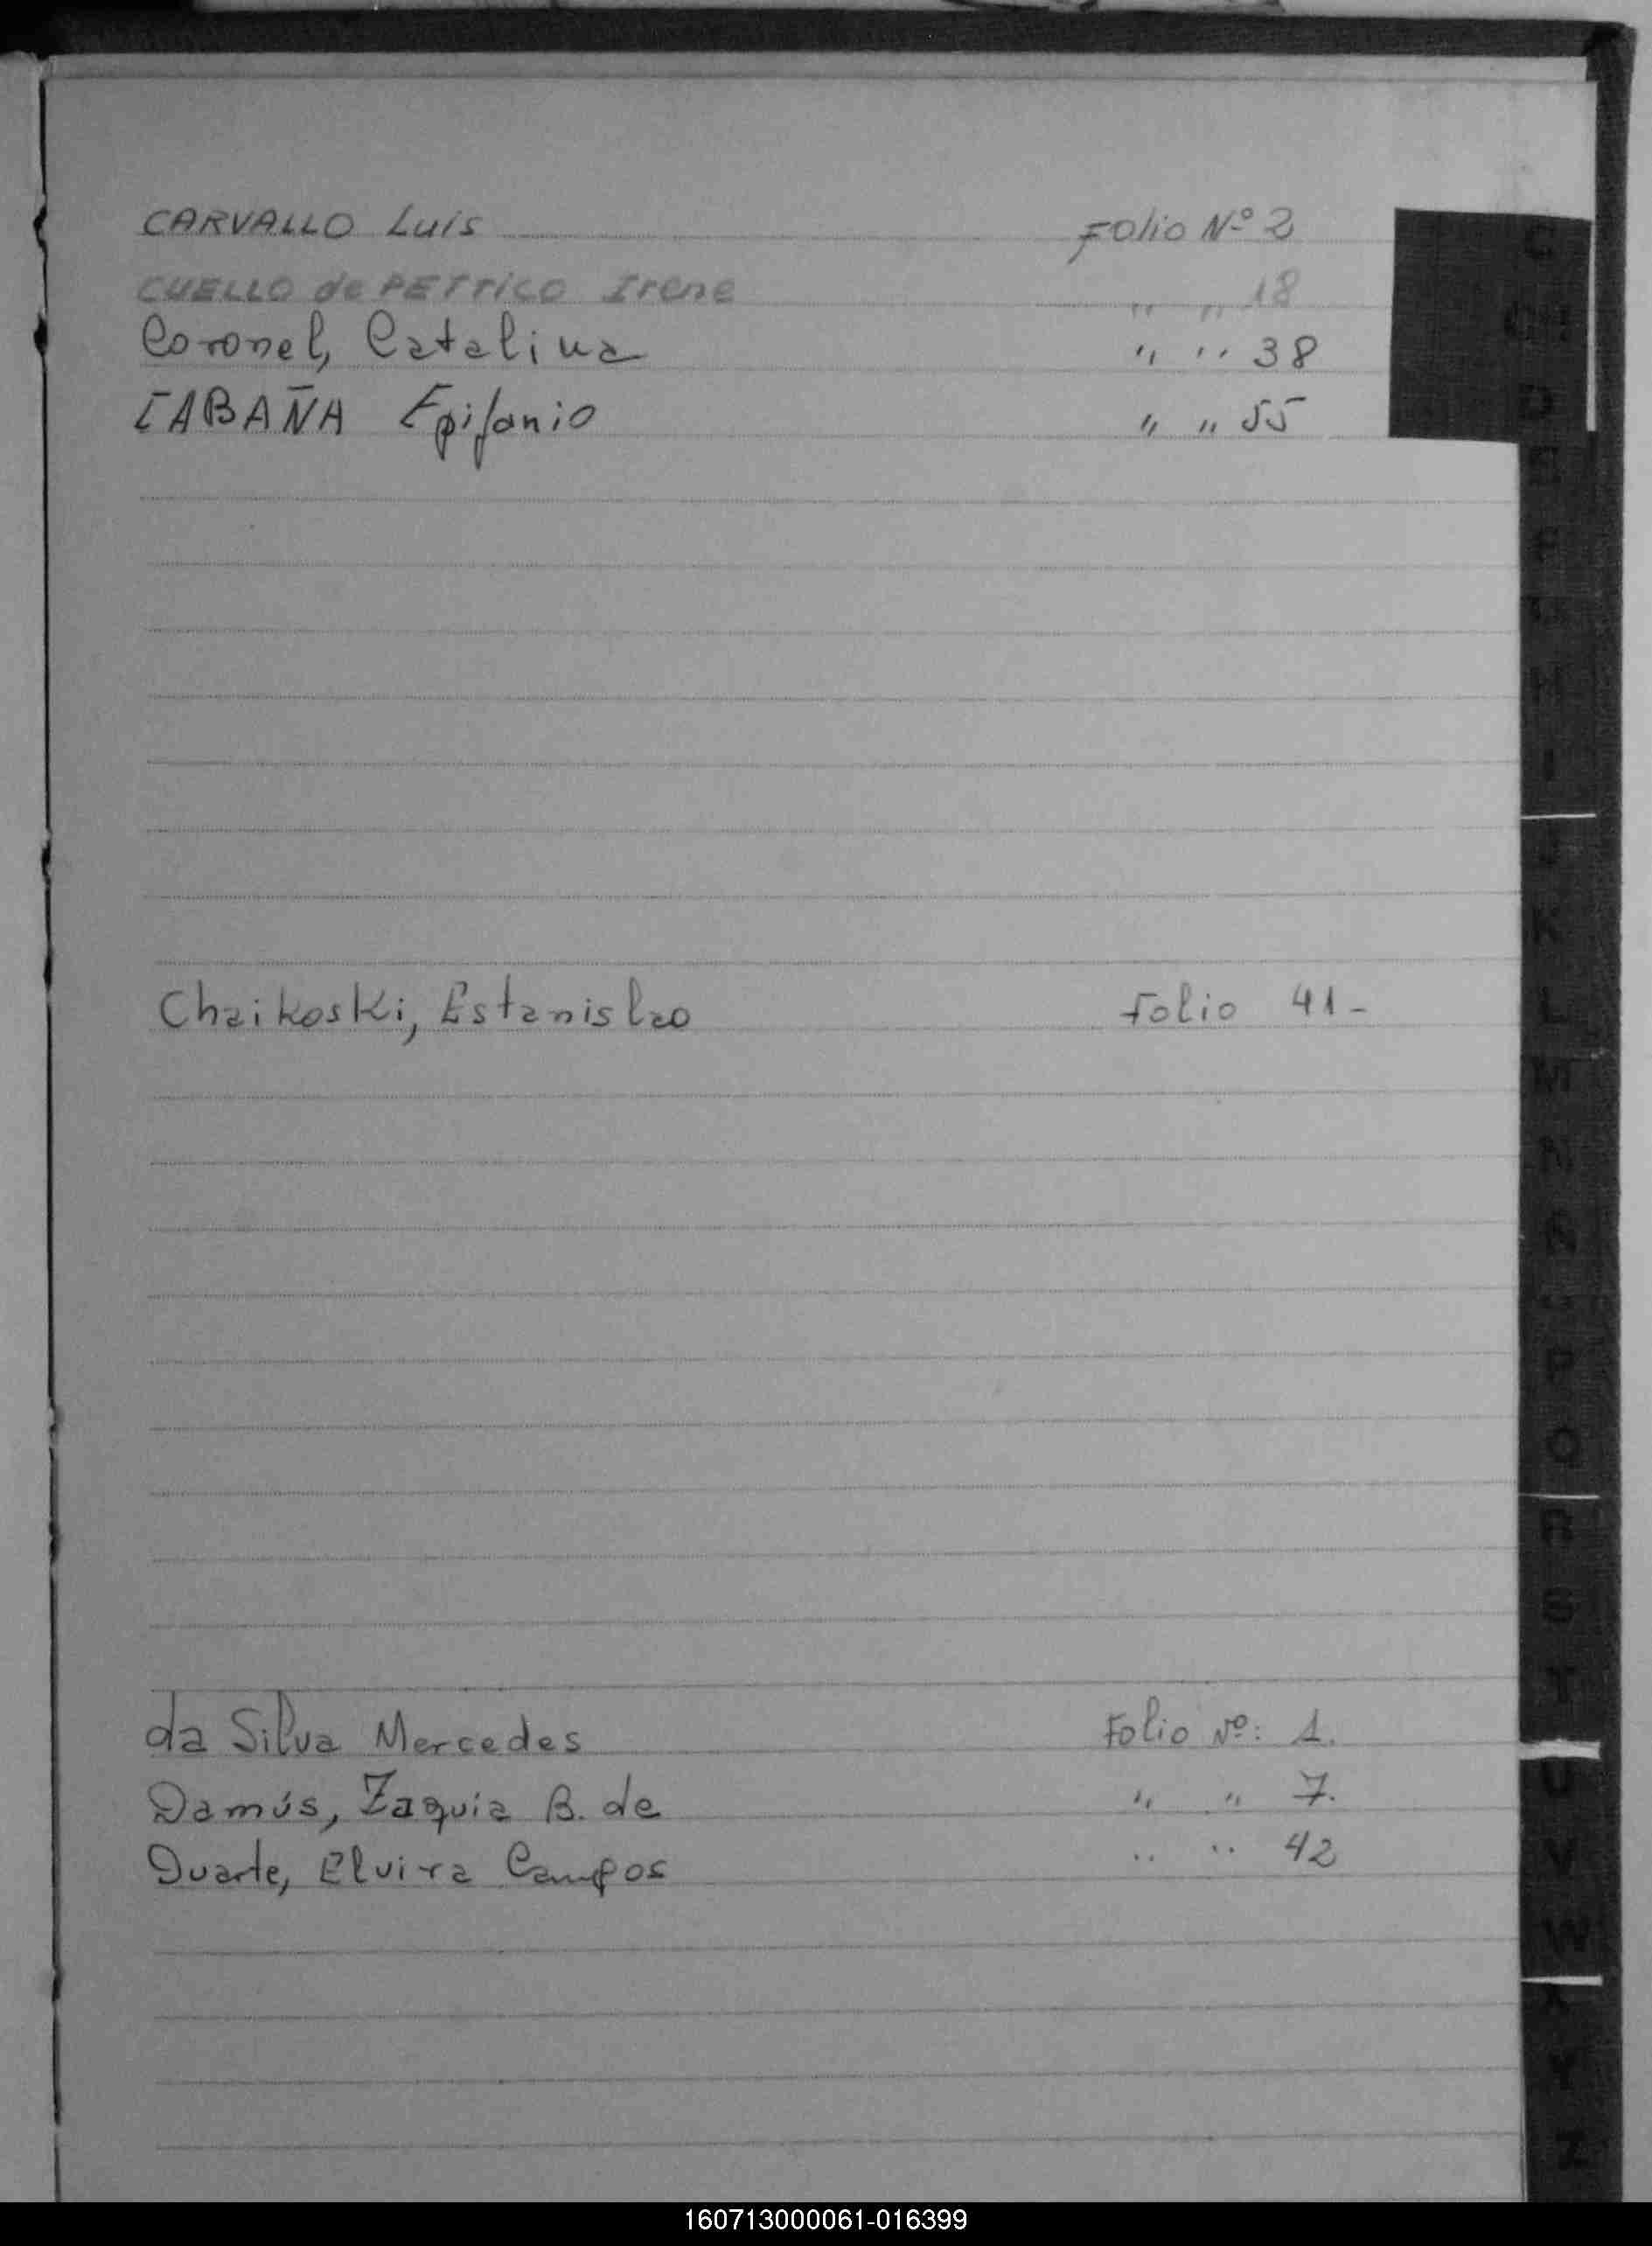 CARVALLO Luis Folio Nº 2
CUELLO de PETTICO Irene " " 18
Coronel, Catalina " " 38
CABAÑA Epifanio " " 55
Chaikoski, Estanislao Folio 41-
da Silva Mercedes Folio Nº: 1.
Damús, Zaquia B. de " " 7.
Duarte, Elvira Campos " " 42
C
CH
D
E
F
G
H
I
J
K
L
M
N
Ñ
O
P
Q
R
S
T
U
V
W
X
Y
Z
160713000061-016399